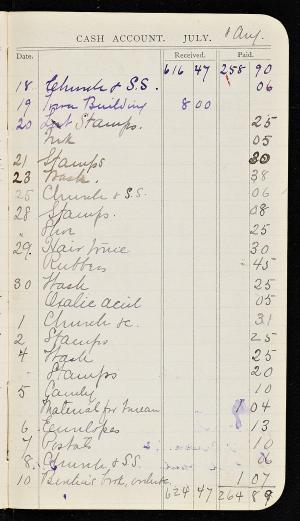 1 Aug.
CASH ACCOUNT. JULY.
Date. Received. Paid.
616 47 258 90
18 Church & S.S. 06
19 Iowa Building 8 00
20 Stamps. 25
Ink 05
21 Stamps 30
23 Wash. 38
25 Church & S.S. 06
28 Stamps. 08
" 25
29. Hair 30
Rubbers 45
30 Wash 25
Oxalic acid 05
1 Church &c. 31
2 Stamps 25
4 Wash 25
Stamps 20
5 Candy 10
Material for 1 04
6 Envelopes 13
7 Postals 10
8 Church & S.S. 06
10 book, 1 07
624 47 264 89